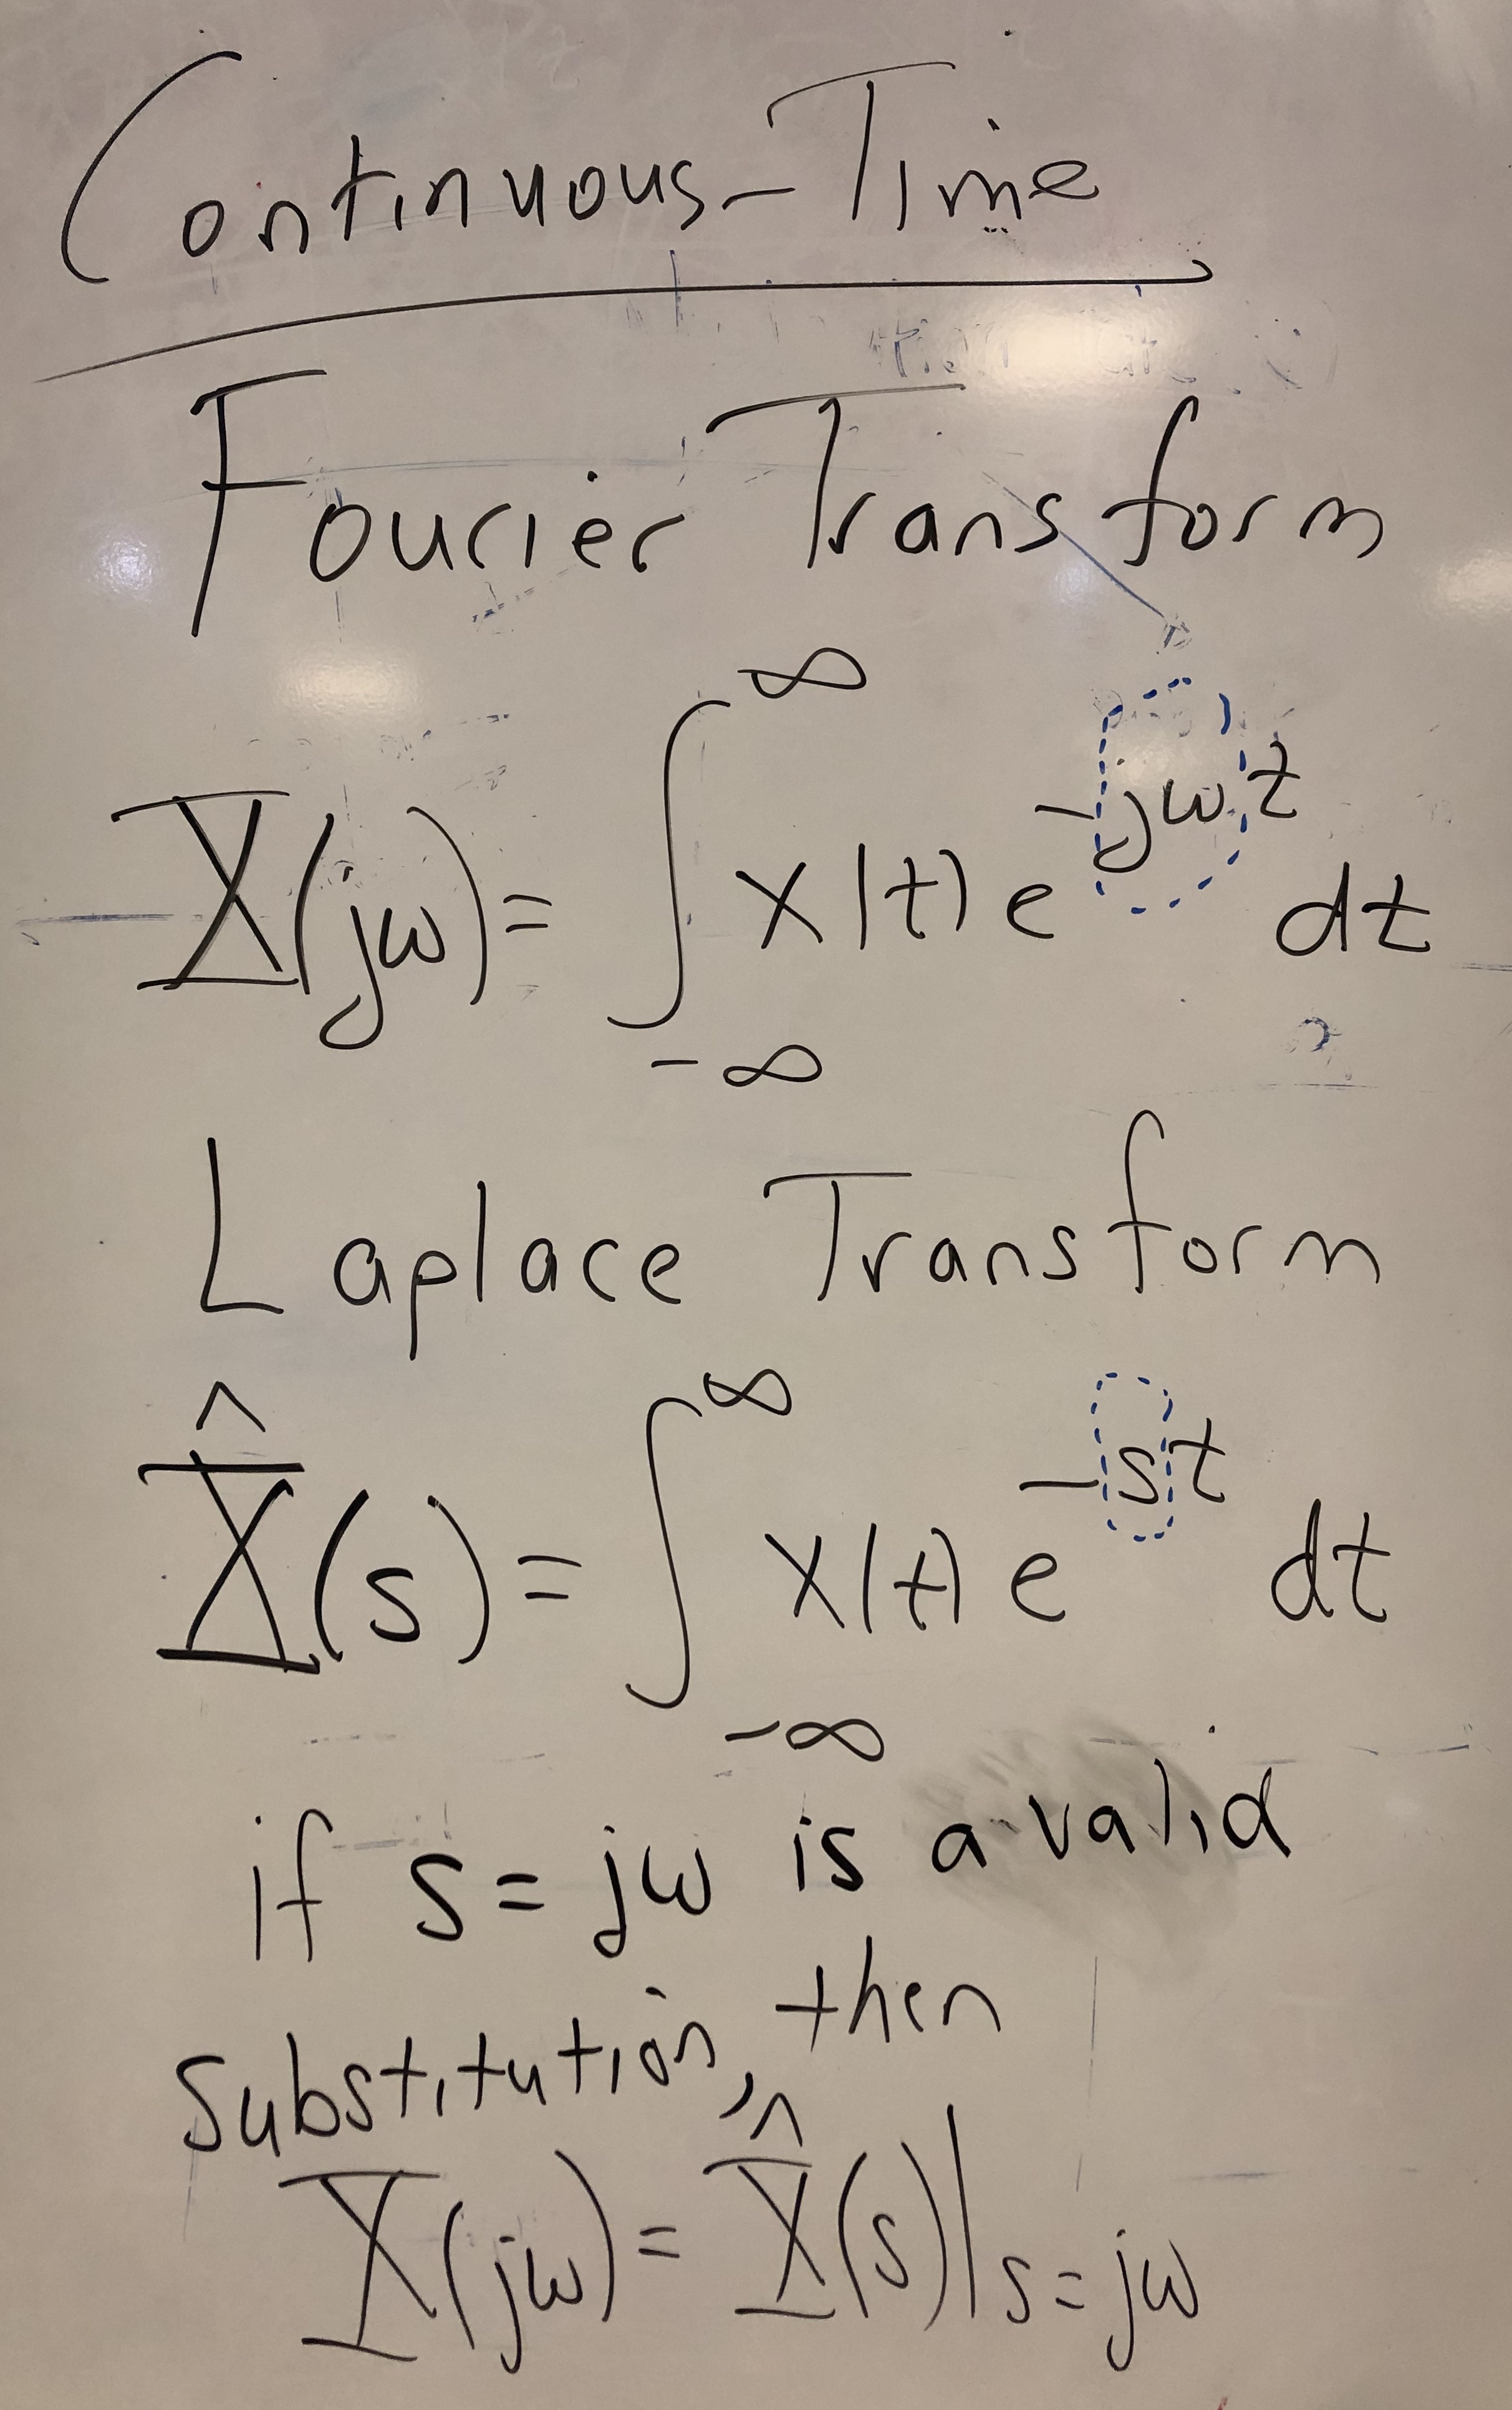 Continuous-Time
Fourier Transform
X(jω) = ∫_{-∞}^{∞} x(t) e^{-jωt} dt
Laplace Transform
X̂(s) = ∫_{-∞}^{∞} x(t) e^{-st} dt
if s = jω is a valid
substitution, then
X(jω) = X̂(s)|_{s=jω}